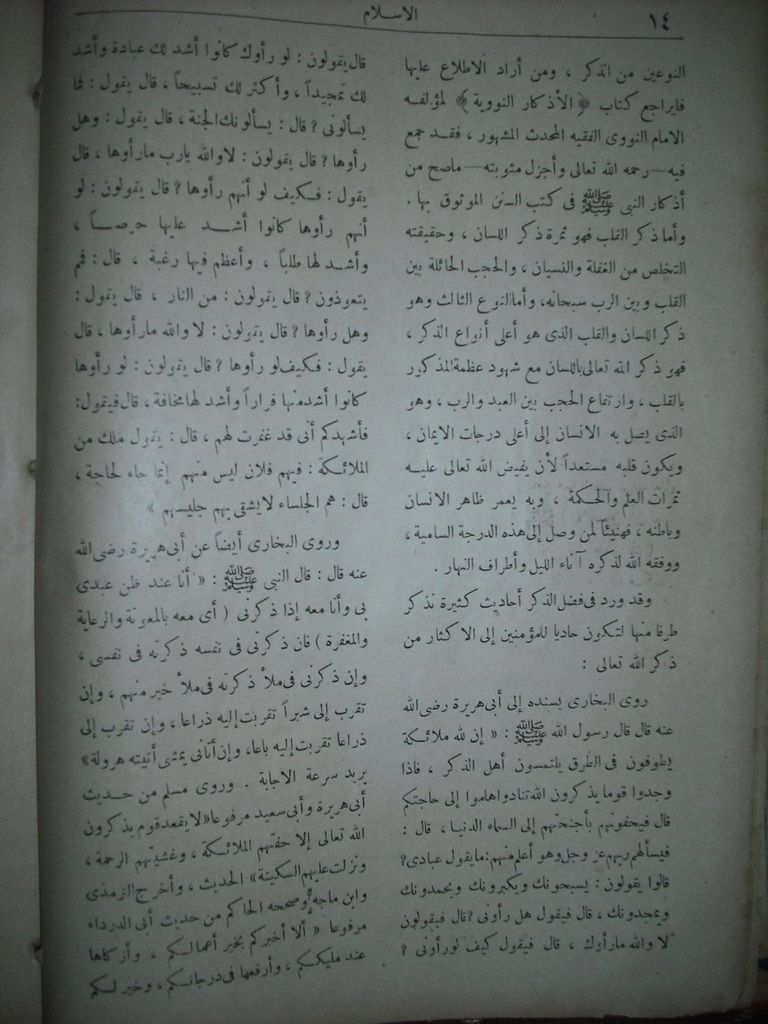 ١٤
الاسلام
النوعين من الذكر ، ومن أراد الاطلاع عليها
فليراجع كتاب ﴿ الأذكار النووية ﴾ لمؤلفه
الامام النووى الفقيه المحدث المشهور ، فقد جمع
فيه — رحمه الله تعالى وأجزل مثوبته — ماصح من
أذكار النبى ﷺ فى كتب السنن الموثوق بها .
وأما ذكر القلب فهو ثمرة ذكر اللسان ، وحقيقته
التخلص من الغفلة والنسيان ، والحجب الحائلة بين
القلب وبين الرب سبحانه، وأما النوع الثالث وهو
ذكر اللسان والقلب الذى هو أعلى أنواع الذكر ،
فهو ذكر الله تعالى باللسان مع شهود عظمة المذكور
بالقلب ، وارتفاع الحجب بين العبد والرب ، وهو
الذى يصل به الانسان إلى أعلى درجات الايمان ،
ويكون قلبه مستعداً لأن يفيض الله تعالى عليه
ثمرات العلم والحكمة ، وبه يعمر ظاهر الانسان
وباطنه ، فهنيئاً لمن وصل إلى هذه الدرجة السامية ،
ووفقه الله لذكره آناء الليل وأطراف النهار .
وقد ورد فى فضل الذكر أحاديث كثيرة نذكر
طرفا منها لتكون حاديا للمؤمنين إلى الاكثار من
ذكر الله تعالى :
روى البخارى بسنده إلى أبى هريرة رضى الله
عنه قال قال رسول الله ﷺ : « إن لله ملائكة
يطوفون فى الطرق يلتمسون أهل الذكر ، فاذا
وجدوا قوما يذكرون الله تنادوا هلموا إلى حاجتكم
قال فيحفونهم بأجنحتهم إلى السماء الدنيا ، قال :
فيسألهم ربهم عز وجل وهو أعلم منهم: مايقول عبادى؟
قالوا يقولون : يسبحونك ويكبرونك ويحمدونك
ويمجدونك ، قال فيقول هل رأونى ؟ قال فيقولون
لا والله مارأوك ، قال فيقول كيف لو رأونى ؟
قال يقولون : لو رأوك كانوا أشد لك عبادة وأشد
لك تمجيداً ، وأكثر لك تسبيحاً ، قال يقول : فما
يسألونى ؟ قال : يسألونك الجنة ، قال يقول : وهل
رأوها ؟ قال يقولون : لا والله يارب مارأوها ، قال
يقول : فكيف لو أنهم رأوها ؟ قال يقولون : لو
أنهم رأوها كانوا أشد عليها حرصاً ،
وأشد لها طلباً ، وأعظم فيها رغبة ، قال : فمم
يتعوذون ؟ قال يقولون : من النار ، قال يقول :
وهل رأوها ؟ قال يقولون : لا والله مارأوها ، قال
يقول : فكيف لو رأوها ؟ قال يقولون : لو رأوها
كانوا أشد منها فراراً وأشد لها مخافة ، قال فيقول:
فأشهدكم أنى قد غفرت لهم ، قال : يقول ملك من
الملائكة : فيهم فلان ليس منهم إنما جاء لحاجة ،
قال : هم الجلساء لا يشقى بهم جليسهم »
وروى البخارى أيضاً عن أبى هريرة رضى الله
عنه قال : قال النبى ﷺ : « أنا عند ظن عبدى
بى وأنا معه إذا ذكرنى ( أى معه بالمعونة والرعاية
والمغفرة ) فان ذكرنى فى نفسه ذكرته فى نفسى ،
وإن ذكرنى فى ملأ ذكرته فى ملأ خير منهم ، وإن
تقرب إلى شبراً تقربت إليه ذراعا ، وإن تقرب إلى
ذراعا تقربت إليه باعا، وإن أتانى يمشى أتيته هرولة»
يريد سرعة الاجابة . وروى مسلم من حديث
أبى هريرة وأبى سعيد مرفوعا «لا يقعد قوم يذكرون
الله تعالى إلا حفتهم الملائكة ، وغشيتهم الرحمة ،
ونزلت عليهم السكينة» الحديث ، وأخرج الترمذى
وابن ماجه وصححه الحاكم من حديث أبى الدرداء
مرفوعا « ألا أخبركم بخير أعمالكم ، وأزكاها
عند مليككم ، وأرفعها فى درجاتكم ، وخير لكم